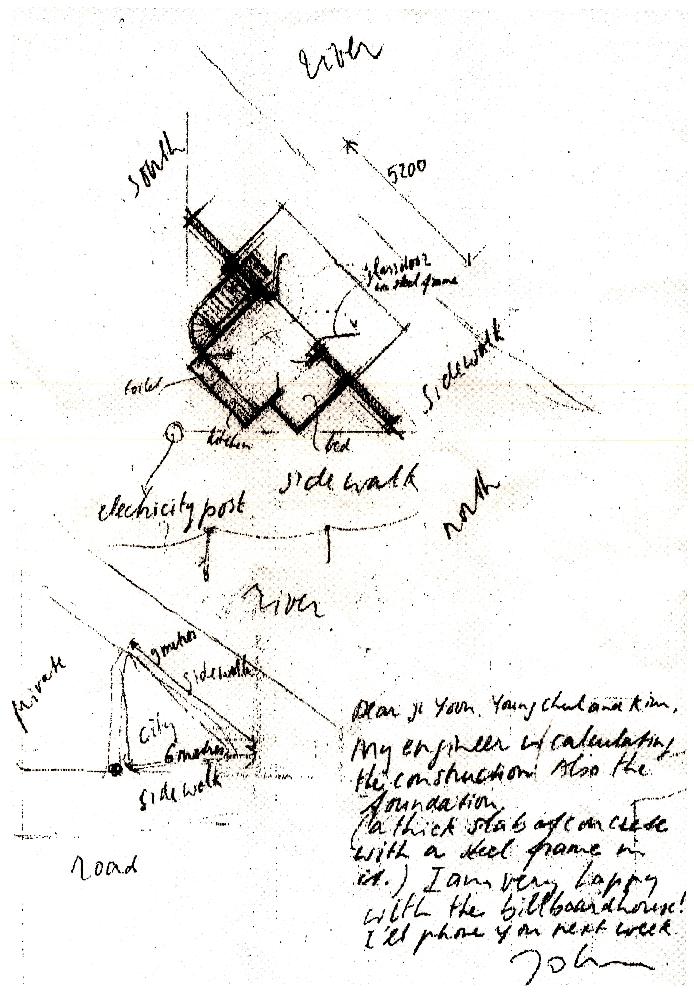 River
South
5200
glassdoor
in steel frame
sidewalk
toilet
kitchen
bed
sidewalk
electricity post
north
River
private
9 metres
sidewalk
City
6 metres
sidewalk
road
Dear Ji Yoon, Youngchul and Kim,
My engineer is calculating
the construction Also the
foundation
(a thick slab of concrete
with a steel frame in
it.) I am very happy
with the billboardhouse!
I'll phone you next week
John